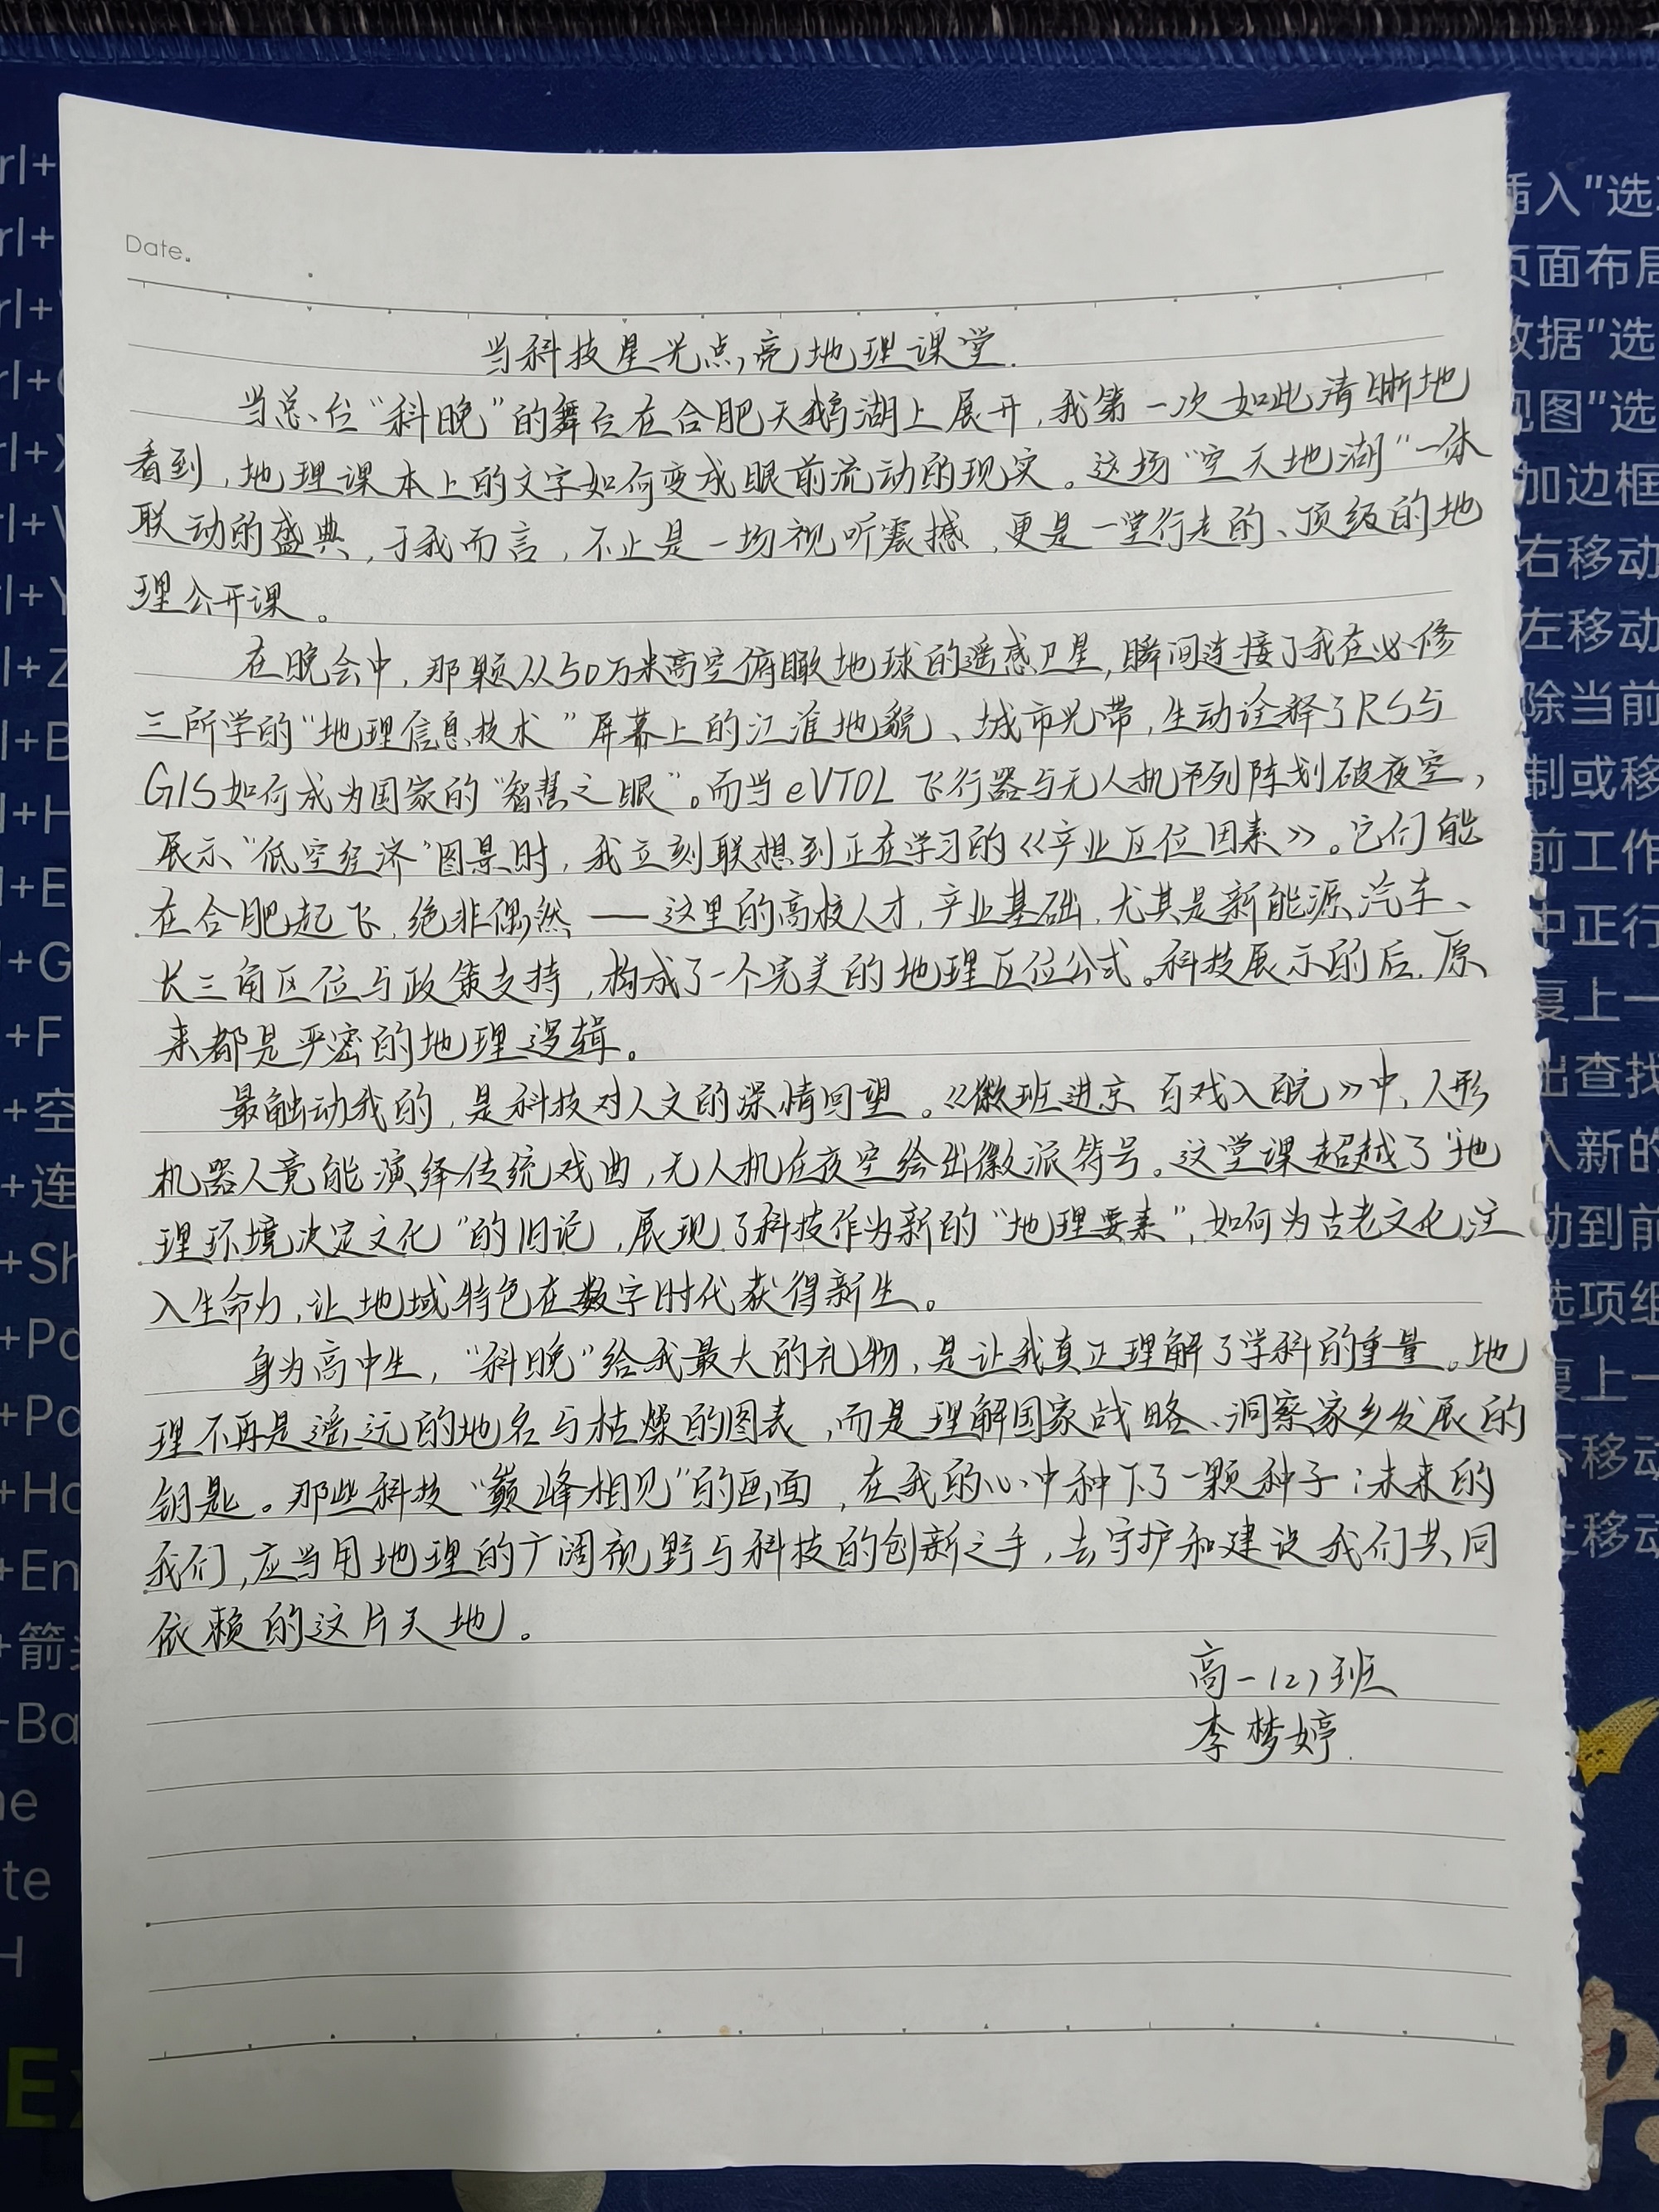 Date.
当科技星光点亮地理课堂.
当总台“科晚”的舞台在合肥天鹅湖上展开,我第一次如此清晰地
看到,地理课本上的文字如何变成眼前流动的现实。这场“空天地湖”一体
联动的盛典,于我而言,不止是一场视听震撼,更是一堂行走的、顶级的地
理公开课。
在晚会中,那颗从50万米高空俯瞰地球的遥感卫星,瞬间连接了我在必修
三所学的“地理信息技术”屏幕上的江淮地貌、城市光带,生动诠释了RS与
GIS如何成为国家的“智慧之眼”。而当eVTOL飞行器与无人机列阵划破夜空,
展示“低空经济”图景时,我立刻联想到正在学习的《产业区位因素》。它们能
在合肥起飞,绝非偶然——这里的高校人才,产业基础,尤其是新能源汽车、
长三角区位与政策支持,构成了一个完美的地理区位公式。科技展示的后,原
来都是严密的地理逻辑。
最触动我的,是科技对人文的深情回望。《徽班进京 百戏入皖》中,人形
机器人竟能演绎传统戏曲,无人机在夜空绘出徽派符号。这堂课超越了“地
理环境决定文化”的旧论,展现了科技作为新的“地理要素”,如何为古老文化注
入生命力,让地域特色在数字时代获得新生。
身为高中生,“科晚”给我最大的礼物,是让我真正理解了学科的重量。地
理不再是遥远的地名与枯燥的图表,而是理解国家战略、洞察家乡发展的
钥匙。那些科技“巅峰相见”的画面,在我的心中种下了一颗种子:未来的
我们,应当用地理的广阔视野与科技的创新之手,去守护和建设我们共同
依赖的这片天地。
高一(2)班
李梦婷.
插入”选
页面布局
数据”选
视图”选
加边框
右移动
左移动
除当前
制或移
前工作
中正行
复上一
出查找
入新的
动到前
选项组
复上一